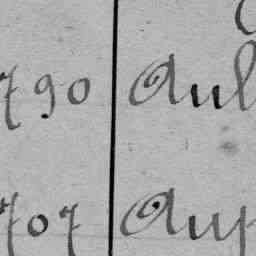 790 Aul
707 Aup